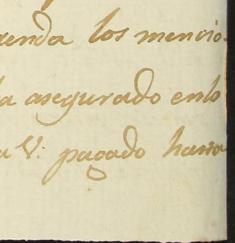 enda los mencio-
a asegurado enlo
a V. pagado hasta